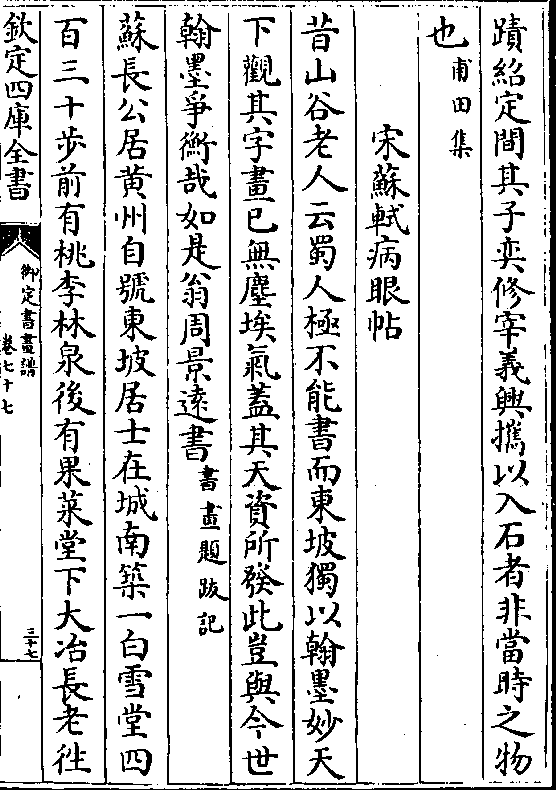 蹟紹定間其子奕修宰義興攜以入石者非當時之物
也甫田集
宋蘇軾病眼帖
昔山谷老人云蜀人極不能書而東坡獨以翰墨妙天
下觀其字畫已無塵埃氣蓋其天資所發此豈與今世
翰墨爭衡哉如是翁周景逺書書畫題跋記
蘇長公居黄州自號東坡居士在城南築一白雪堂四
百三十步前有桃李林泉後有果菜堂下大冶長老徃
欽定四庫全書
御定書畫譜
卷七十七
三十七